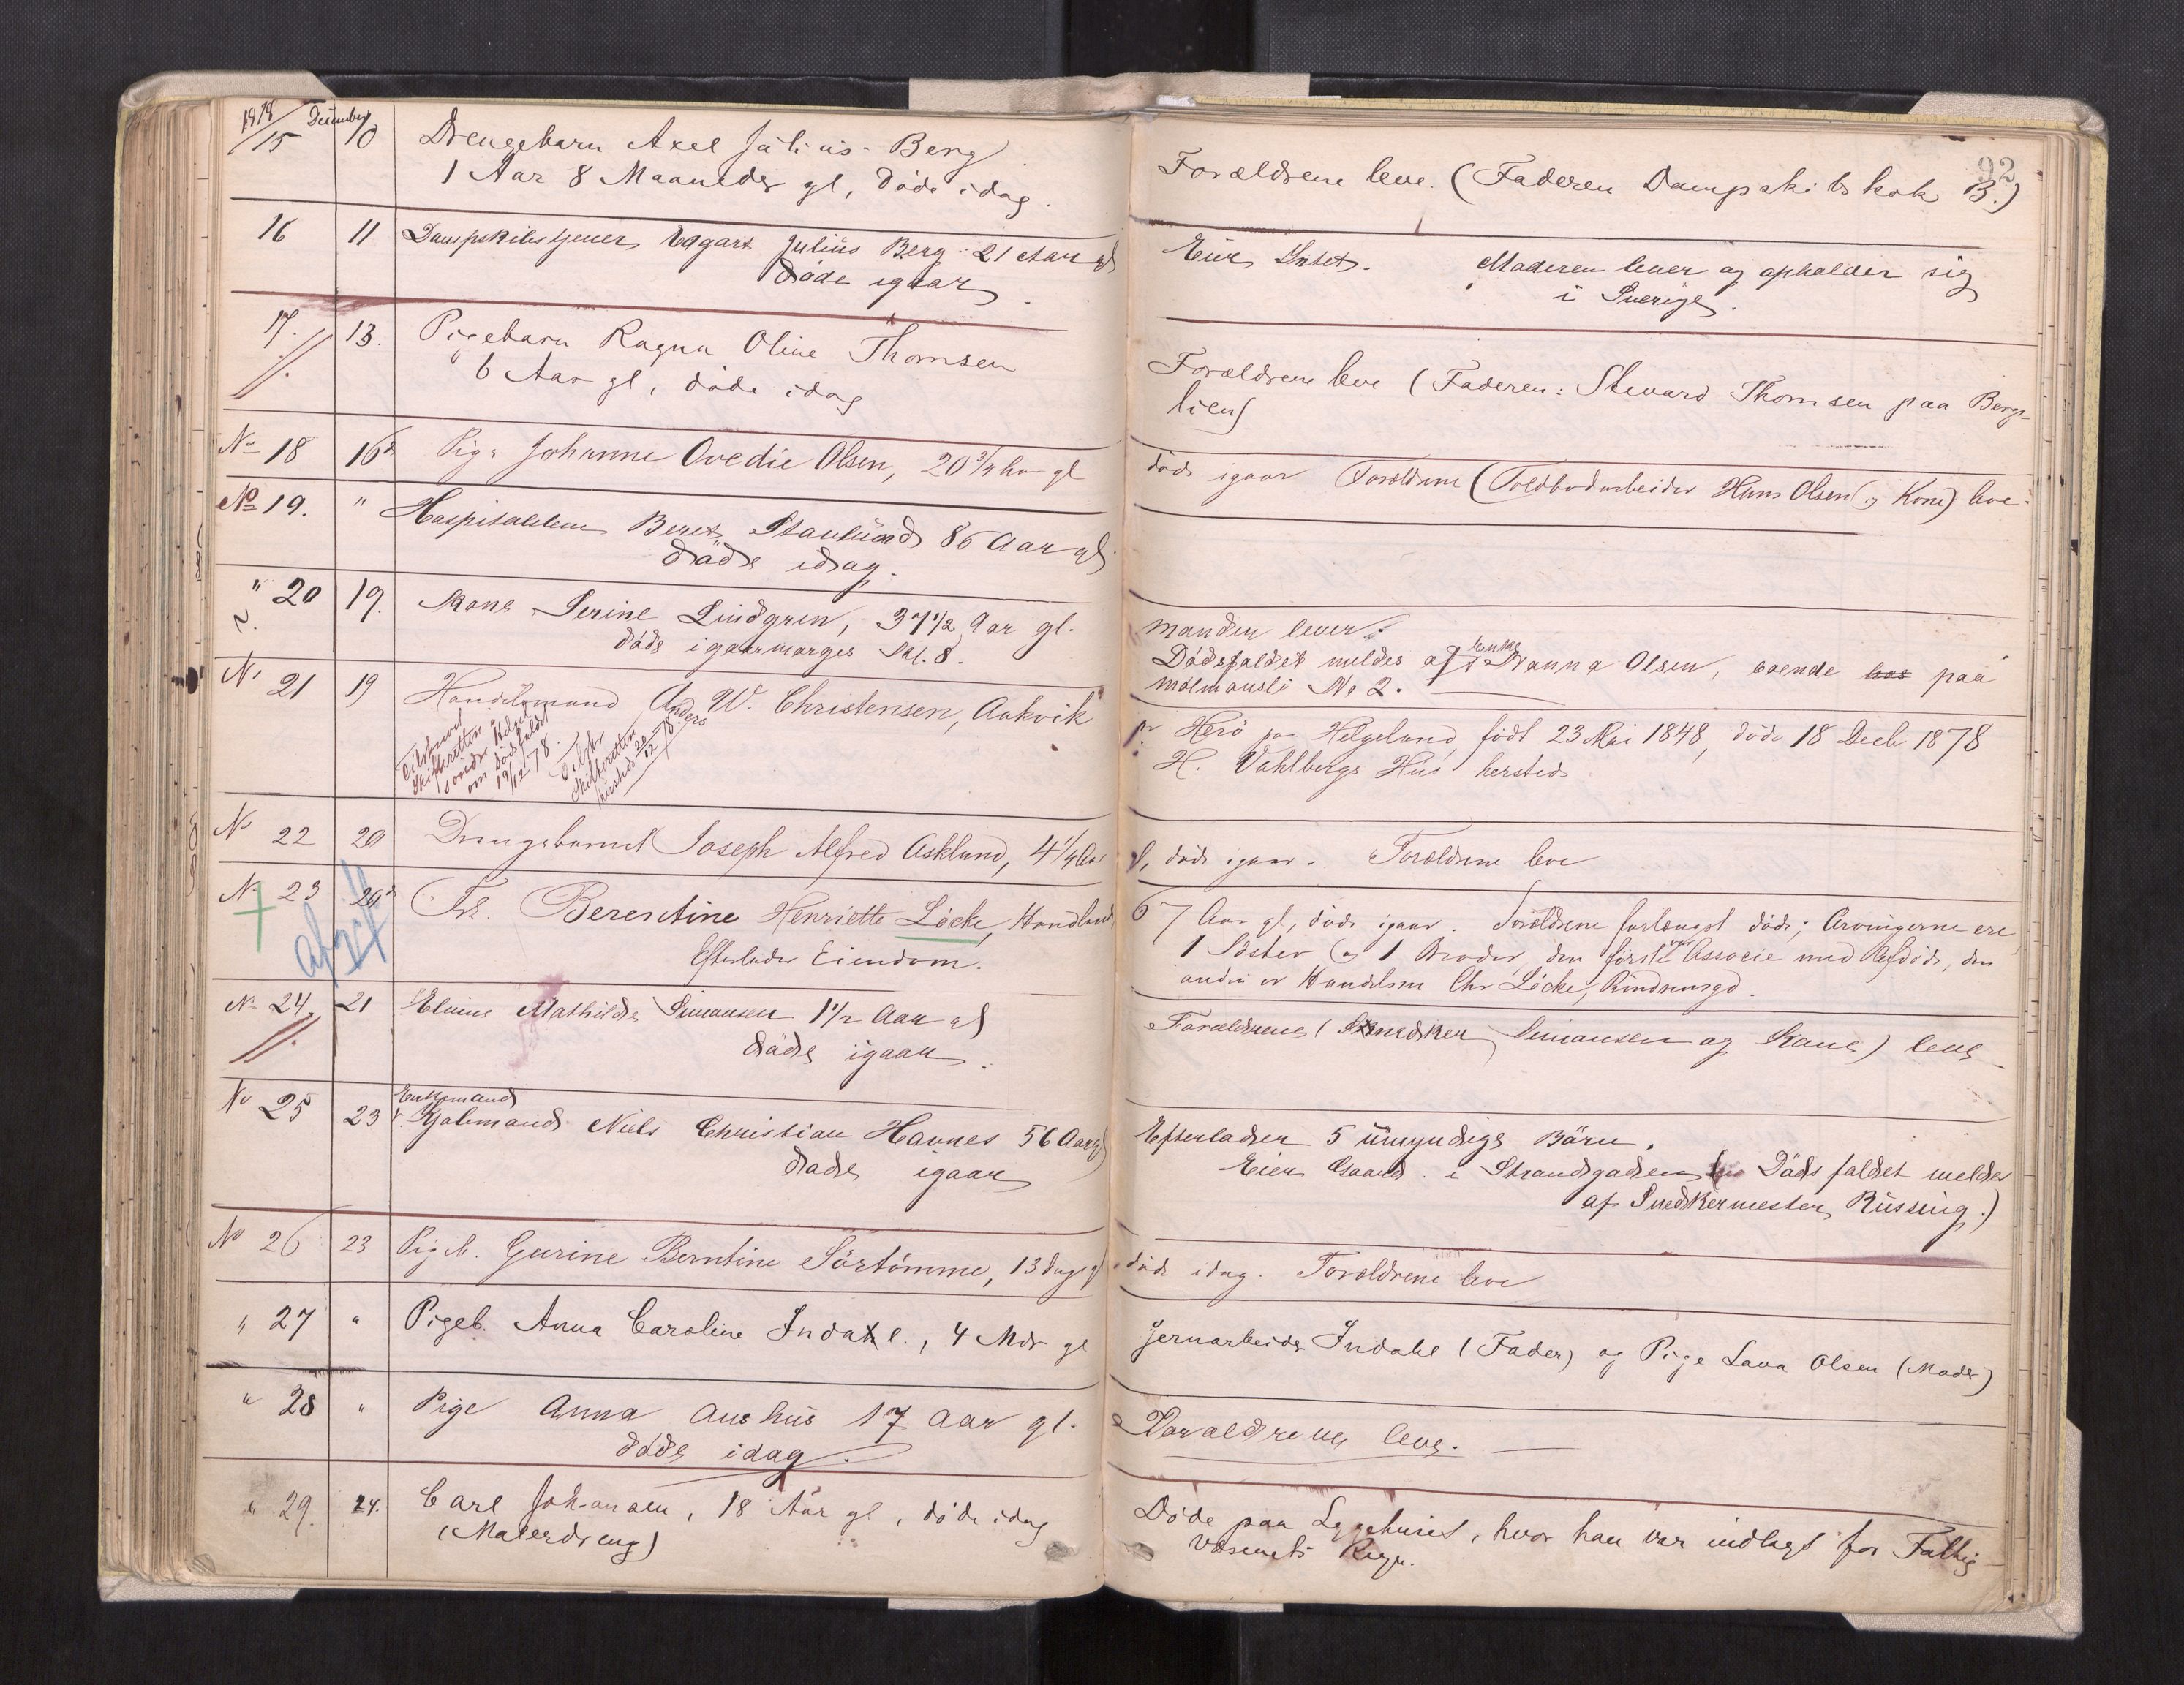 92
1878 December
15 10 Drengebarn Axel Julius Berg
1 Aar 8 Maaneder gl, döde idag.
Forældrene leve. (Faderen Dampskibskok B.)
16 11 Dampskibstjener Edgart Julius Berg 21 Aar gl
döde igaar.
Eier Intet. Moderen lever og opholder sig
i Sverige.
17. 13. Pigebarn Ragna Oline Thomsen
6 Aar gl, döde idag
Forældrene leve (Faderen: Steward Thomsen paa Bergs-
lien)
No 18 16d Pige Johanne Ovedie Olsen, 20 3/4 Aar gl
döde igaar Forældrene (Toldbodarbeider Hans Olsen og Kone) leve.
No 19. " Hospitalslem Beret Stavlund 86 Aar gl.
döde idag.
" 20 19. Kone Serine Lindgren, 37 1/2 Aar gl.
döde igaarmorges Kl. 8.
Manden lever.
Dödsfaldet meldes af Enke Nanna Olsen, boende hos paa
Malmausli No 2.
N. 21 19 Handelsmand Anders W. Christensen, Aakvik
Tilskrevet
Skifteretten i
söndre Helgel
om dödsfaldet
19/12 78.
Tilskr
Skifteretten
hersteds 20/12 78
pr Herö paa Helgeland, födt 23 Mai 1848, döde 18 Decb 1878
H. Vahlbergs Hus hersteds
No 22 20 Drengebarnet Joseph Alfred Asklund, 4 1/4 Aar
gl, döde igaar. Forældrene leve
N. 23 20d Frk. Berentine Henriette Löcke, Handlende
Efterlader Eiendom.
67 Aar gl, döde igaar. Forældrene forlængst döde; Arvingerne ere
1 Söster og 1 Broder, den förste var Associe med Afdöde, den
anden er Handelsm Chr Löcke, Rindrensgd.
N. 24. 21 Elvine Mathilde Simonsen 1 1/2 Aar gl
döde igaar.
Forældrene (Snedker Simonsen og Kone) leve
No 25 23 Enkemand
Gjalmand Niels Christian Havnes 56 Aar gl
döde igaar
Efterlader 5 umyndige Börn.
Eier Gaard i Strandgaden (Dödsfaldet meldes
af Snedkermester Rüssing.)
No 26 23 Pigeb. Gurine Berntine Sörtömme, 13 Dage gl
döde idag. Forældrene leve
" 27 " Pigeb. Anna Caroline Indahl., 4 Mdr gl
Jernarbeider Indahl (Fader) og Pige Lava Olsen (Moder)
" 28 " Pige Anna Aushus 17 Aar gl.
döde idag.
Forældrene leve.
" 29. 24. Carl Johansen, 18 Aar gl, döde idag
(Malerdreng)
Döde paa Sygehuset, hvor han var indlagt for Fattig
væsenets Regn.